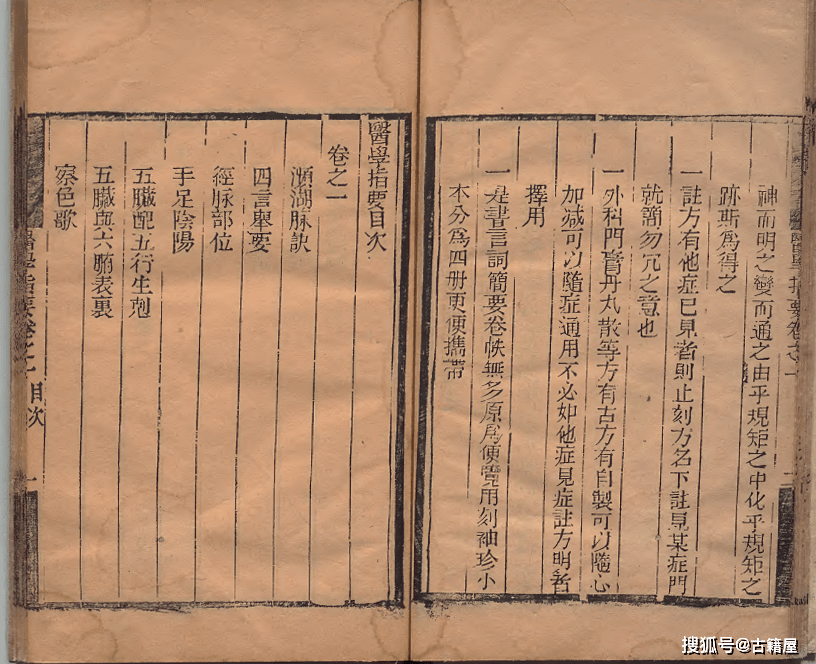 神而明之變而通之由乎規矩之中化乎規矩之
跡斯為得之
一註方有他症已見者則止刻方名下註見某症門
就簡勿冗之意也
一外科門膏丹丸散等方有古方有自製可以隨心
加減可以隨症通用不必如他症見症註方明者
擇用
一是書言詞簡要卷帙無多原為便覽用刻袖珍小
本分為四册更便攜帶
醫學指要目次
卷之一
瀕湖脉訣
四言舉要
經脉部位
手足陰陽
五臟配五行生剋
五臟與六腑表裏
察色歌
醫學指要卷之一 目次 一
搜狐号@古籍屋